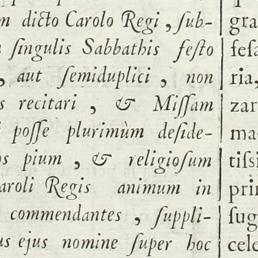 m dicto Carolo Regi, sub-
singulis Sabbathis festo
, aut semiduplici, non
s recitari, & Missam
i posse plurimùm deside-
os pium, & religiosum
aroli Regis animum in
commendantes, suppli-
us ejus nomine super hoc
gra
fesa
ria,
zar
ma
tissi
prin
sug
cele